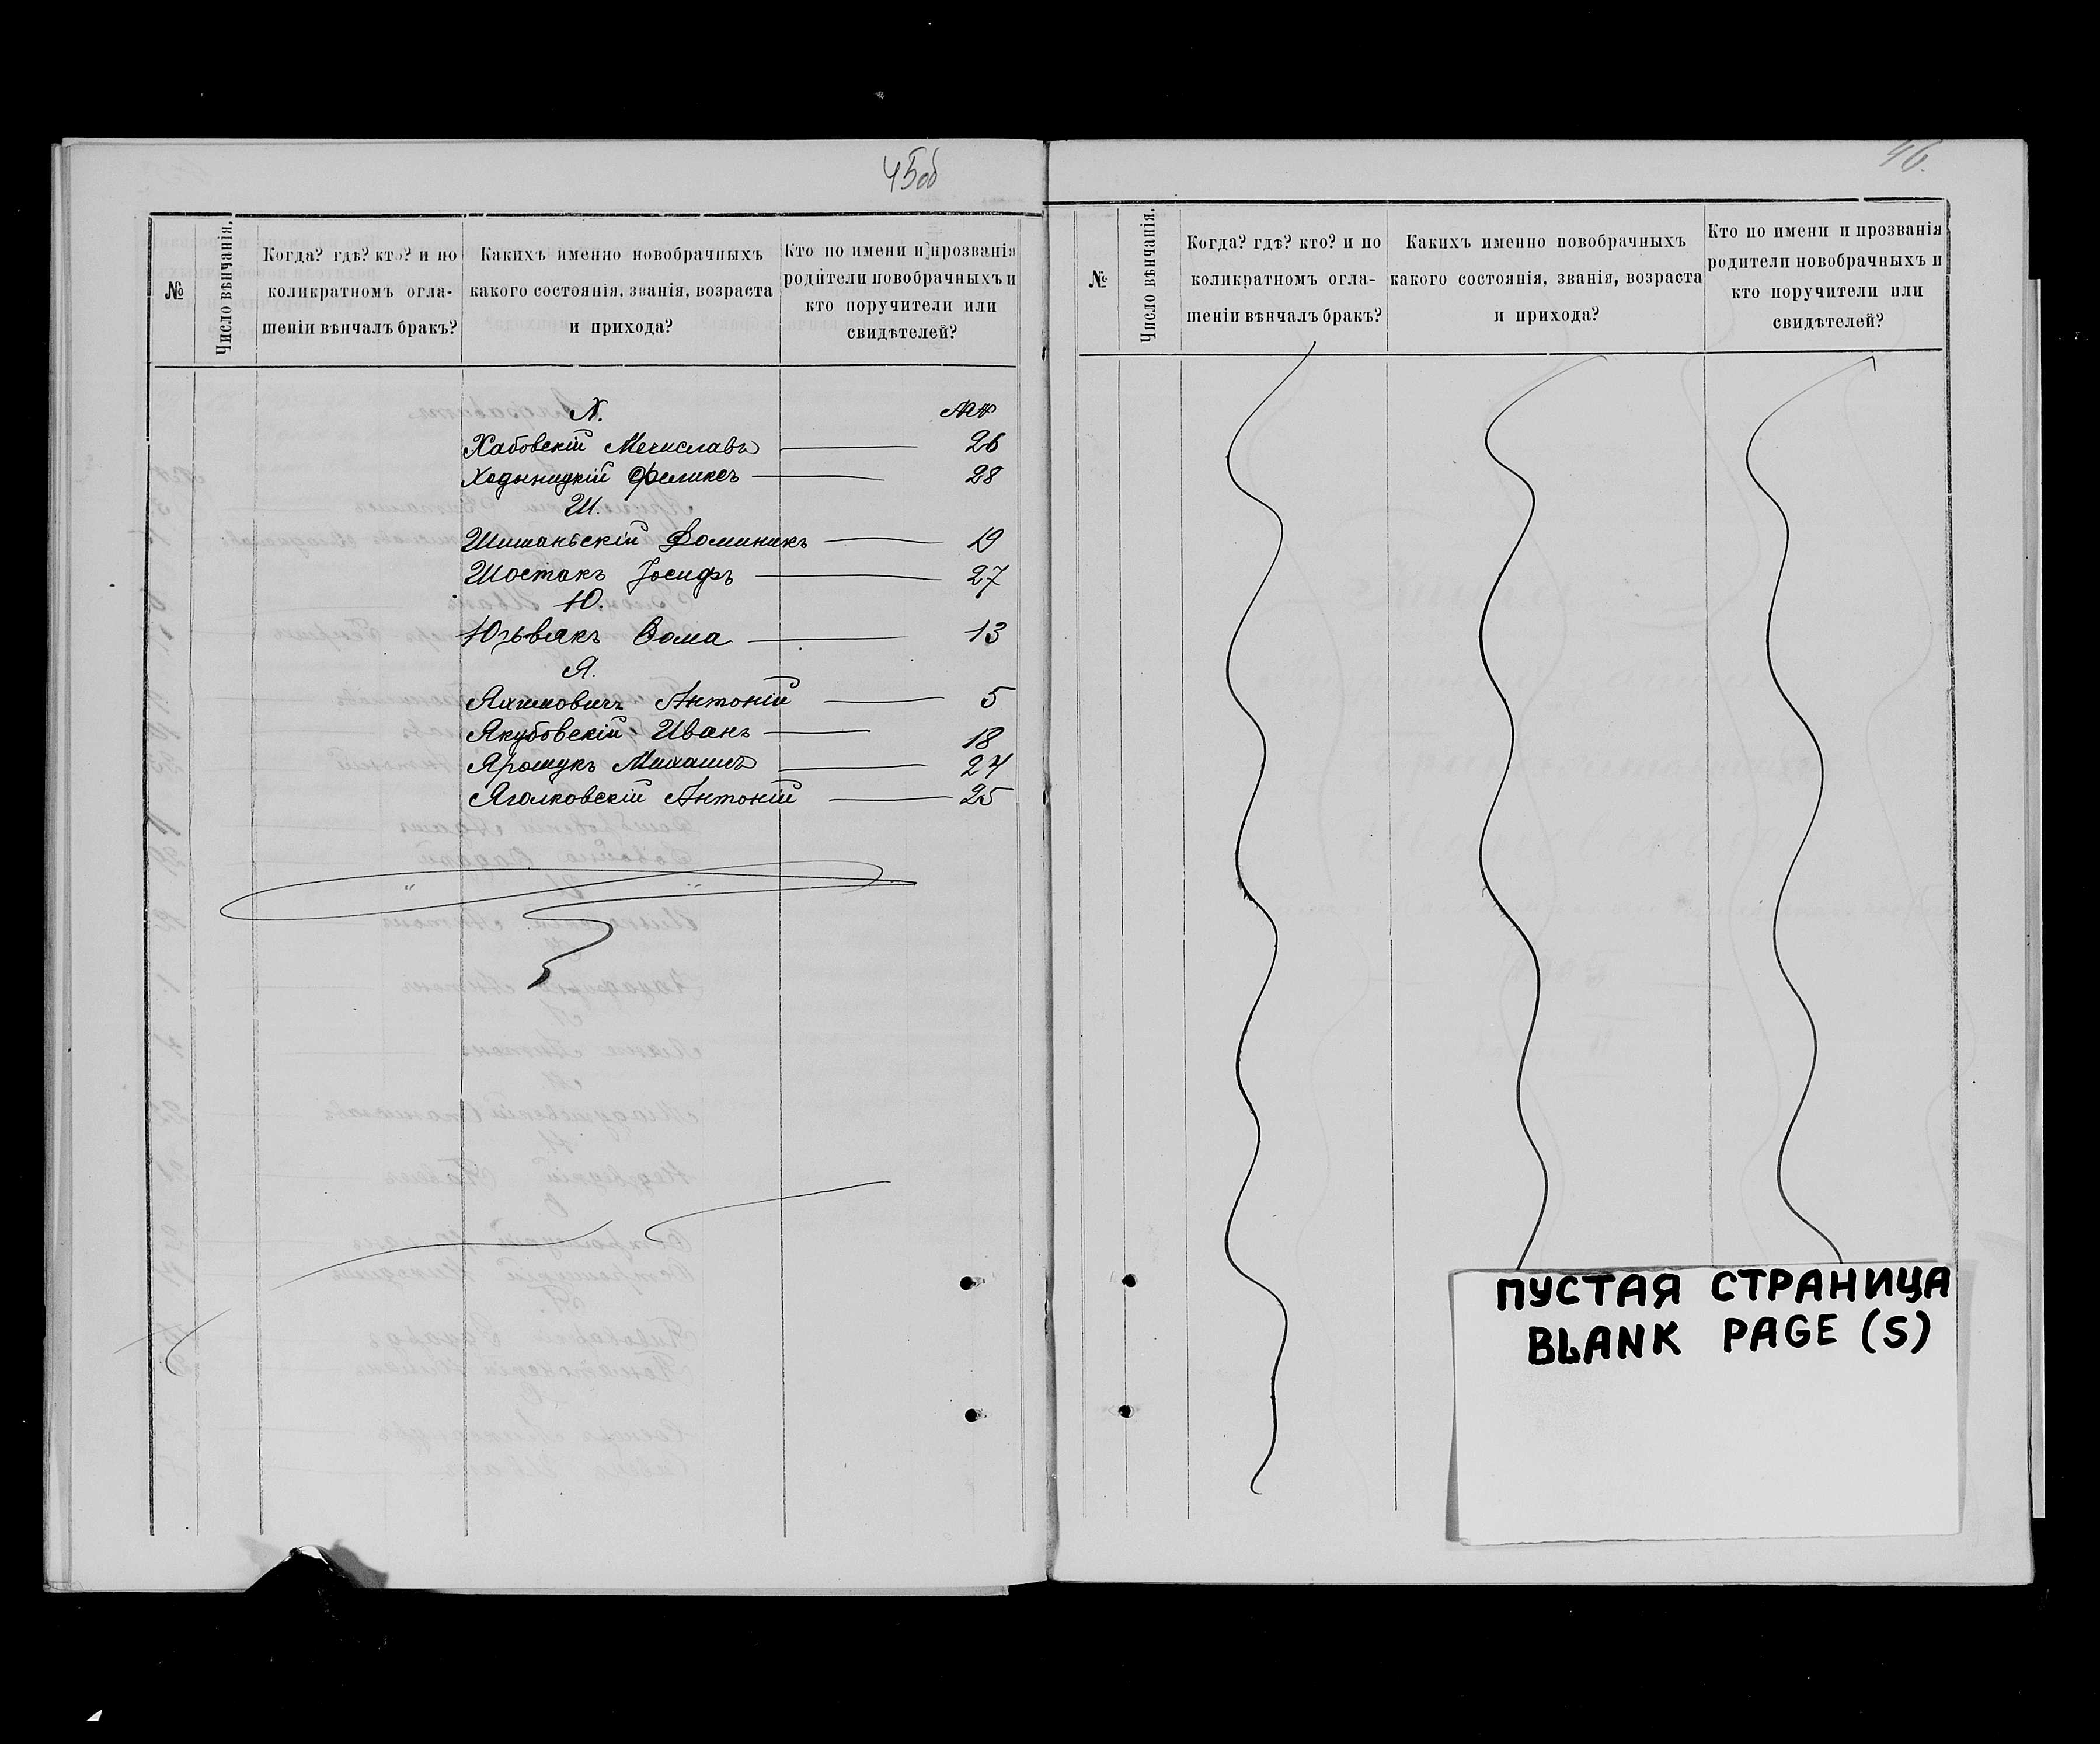 45об
№
Число вѣнчанія.
Когда? гдѣ? кто? и по
коликратномъ огла-
шеніи вѣнчалъ бракъ?
Какихъ именно новобрачныхъ
какого состоянія, званія, возраста
и прихода?
Кто по имени и прозванія
родители новобрачныхъ и
кто поручители или
свидѣтелей?
Х. №№
Хабовскій Мечиславъ 26
Ходыницкій Феликсъ 28
Ш.
Шиманьскій Доминикъ 19
Шостакъ Іосифъ 27
Ю.
Юзьвякъ Ѳома 13
Я.
Яхимовичъ Антоній 5
Якубовскій Иванъ 18
Ярощукъ Михаилъ 24
Яголковскій Антоній 25
46.
№
Число вѣнчанія.
Когда? гдѣ? кто? и по
коликратномъ огла-
шеніи вѣнчалъ бракъ?
Какихъ именно новобрачныхъ
какого состоянія, званія, возраста
и прихода?
Кто по имени и прозванія
родители новобрачныхъ и
кто поручители или
свидѣтелей?
ПУСТАЯ СТРАНИЦА
BLANK PAGE (S)